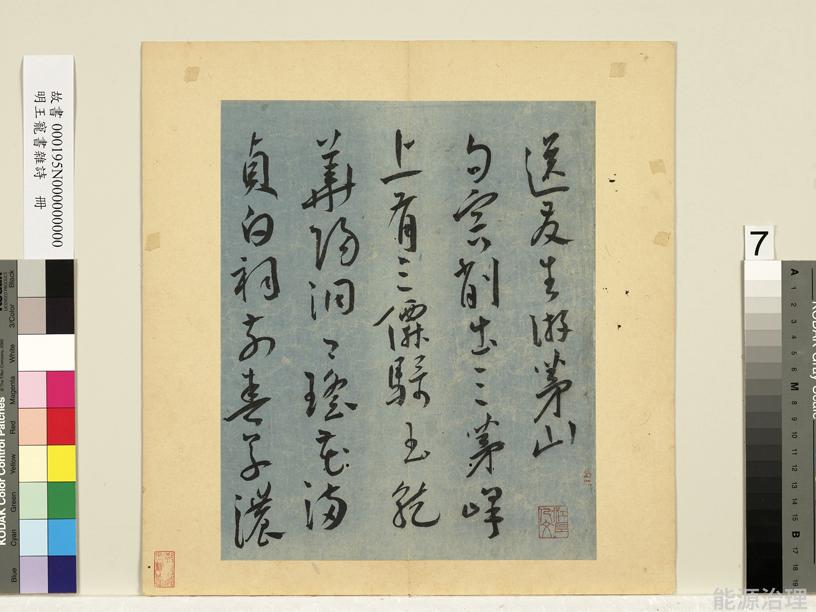 送友生游茅山
句容削出三茅峰
上有三僊騎玉龍
華陽洞口瑤花滿
貞白祠前春草濃
故書 000195N000000000
明王寵書雜詩 冊
7
KODAK Color Control Patches
Blue Cyan Green Yellow Red Magenta White 3/Color Black
A 1 2 3 4 5 6 M 8 9 10 11 12 13 14 15 B 17 18 19
能源治理